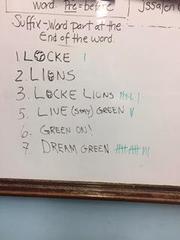 word. Pre = before
Suffix - Word part at the
End of the word.
1. LOCKE
2. LIONS
3. LOCKE LIONS
5. LIVE (Stay) GREEN
6. GREEN ON!
7 DREAM GREEN